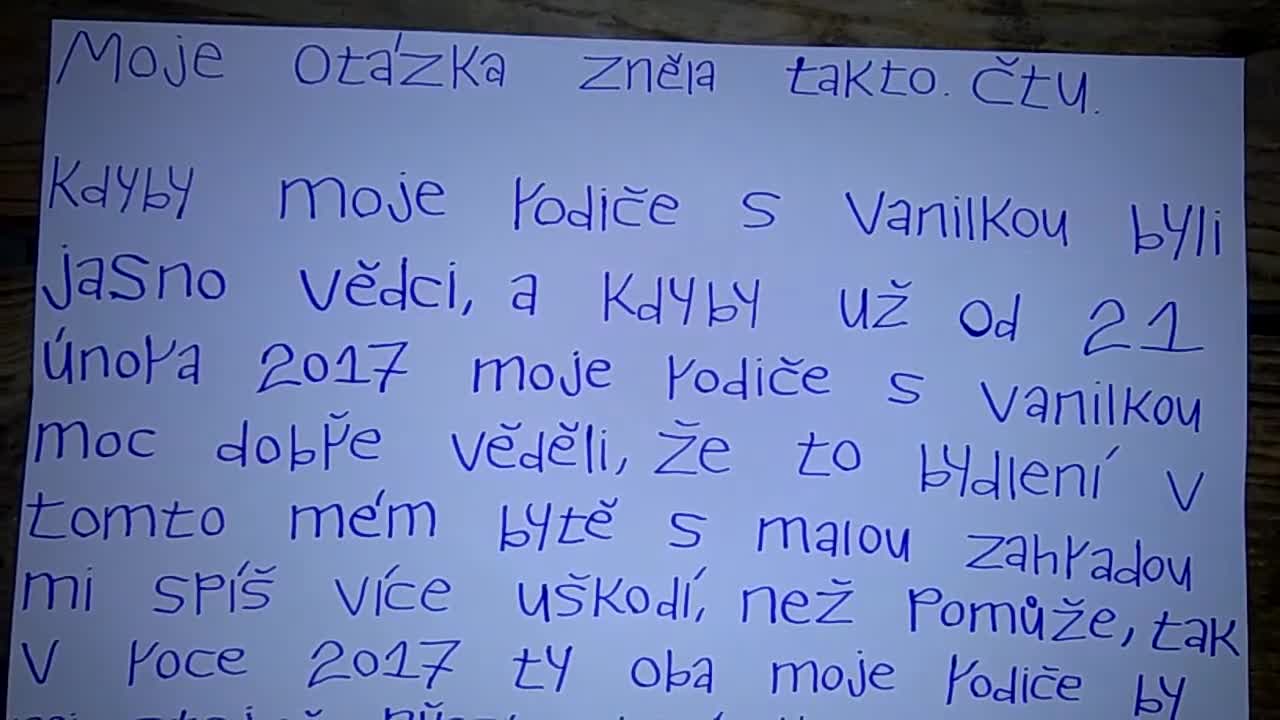 Moje otázka zněla takto. Čtu.
Kdyby moje rodiče s Vanilkou byli
jasno vědci, a kdyby už od 21
února 2017 moje rodiče s Vanilkou
moc dobře věděli, že to bydlení v
tomto mém bytě s malou zahradou
mi spíš více uškodí, než pomůže, tak
v roce 2017 ty oba moje rodiče by